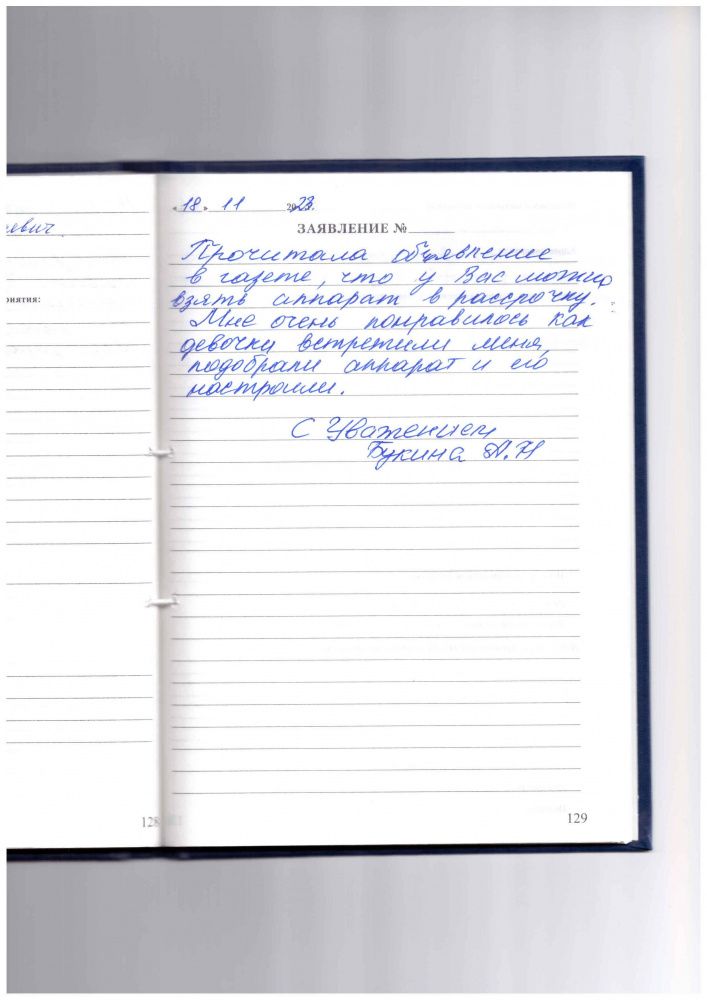 евич.
риятия:
128
«18» 11 2023.
ЗАЯВЛЕНИЕ №
Прочитала объявление
в газете, что у Вас можно
взять аппарат в рассрочку.
Мне очень понравилось как
девочки встретили меня,
подобрали аппарат и его
настроили.
С Уважением
Букина А.Н
129